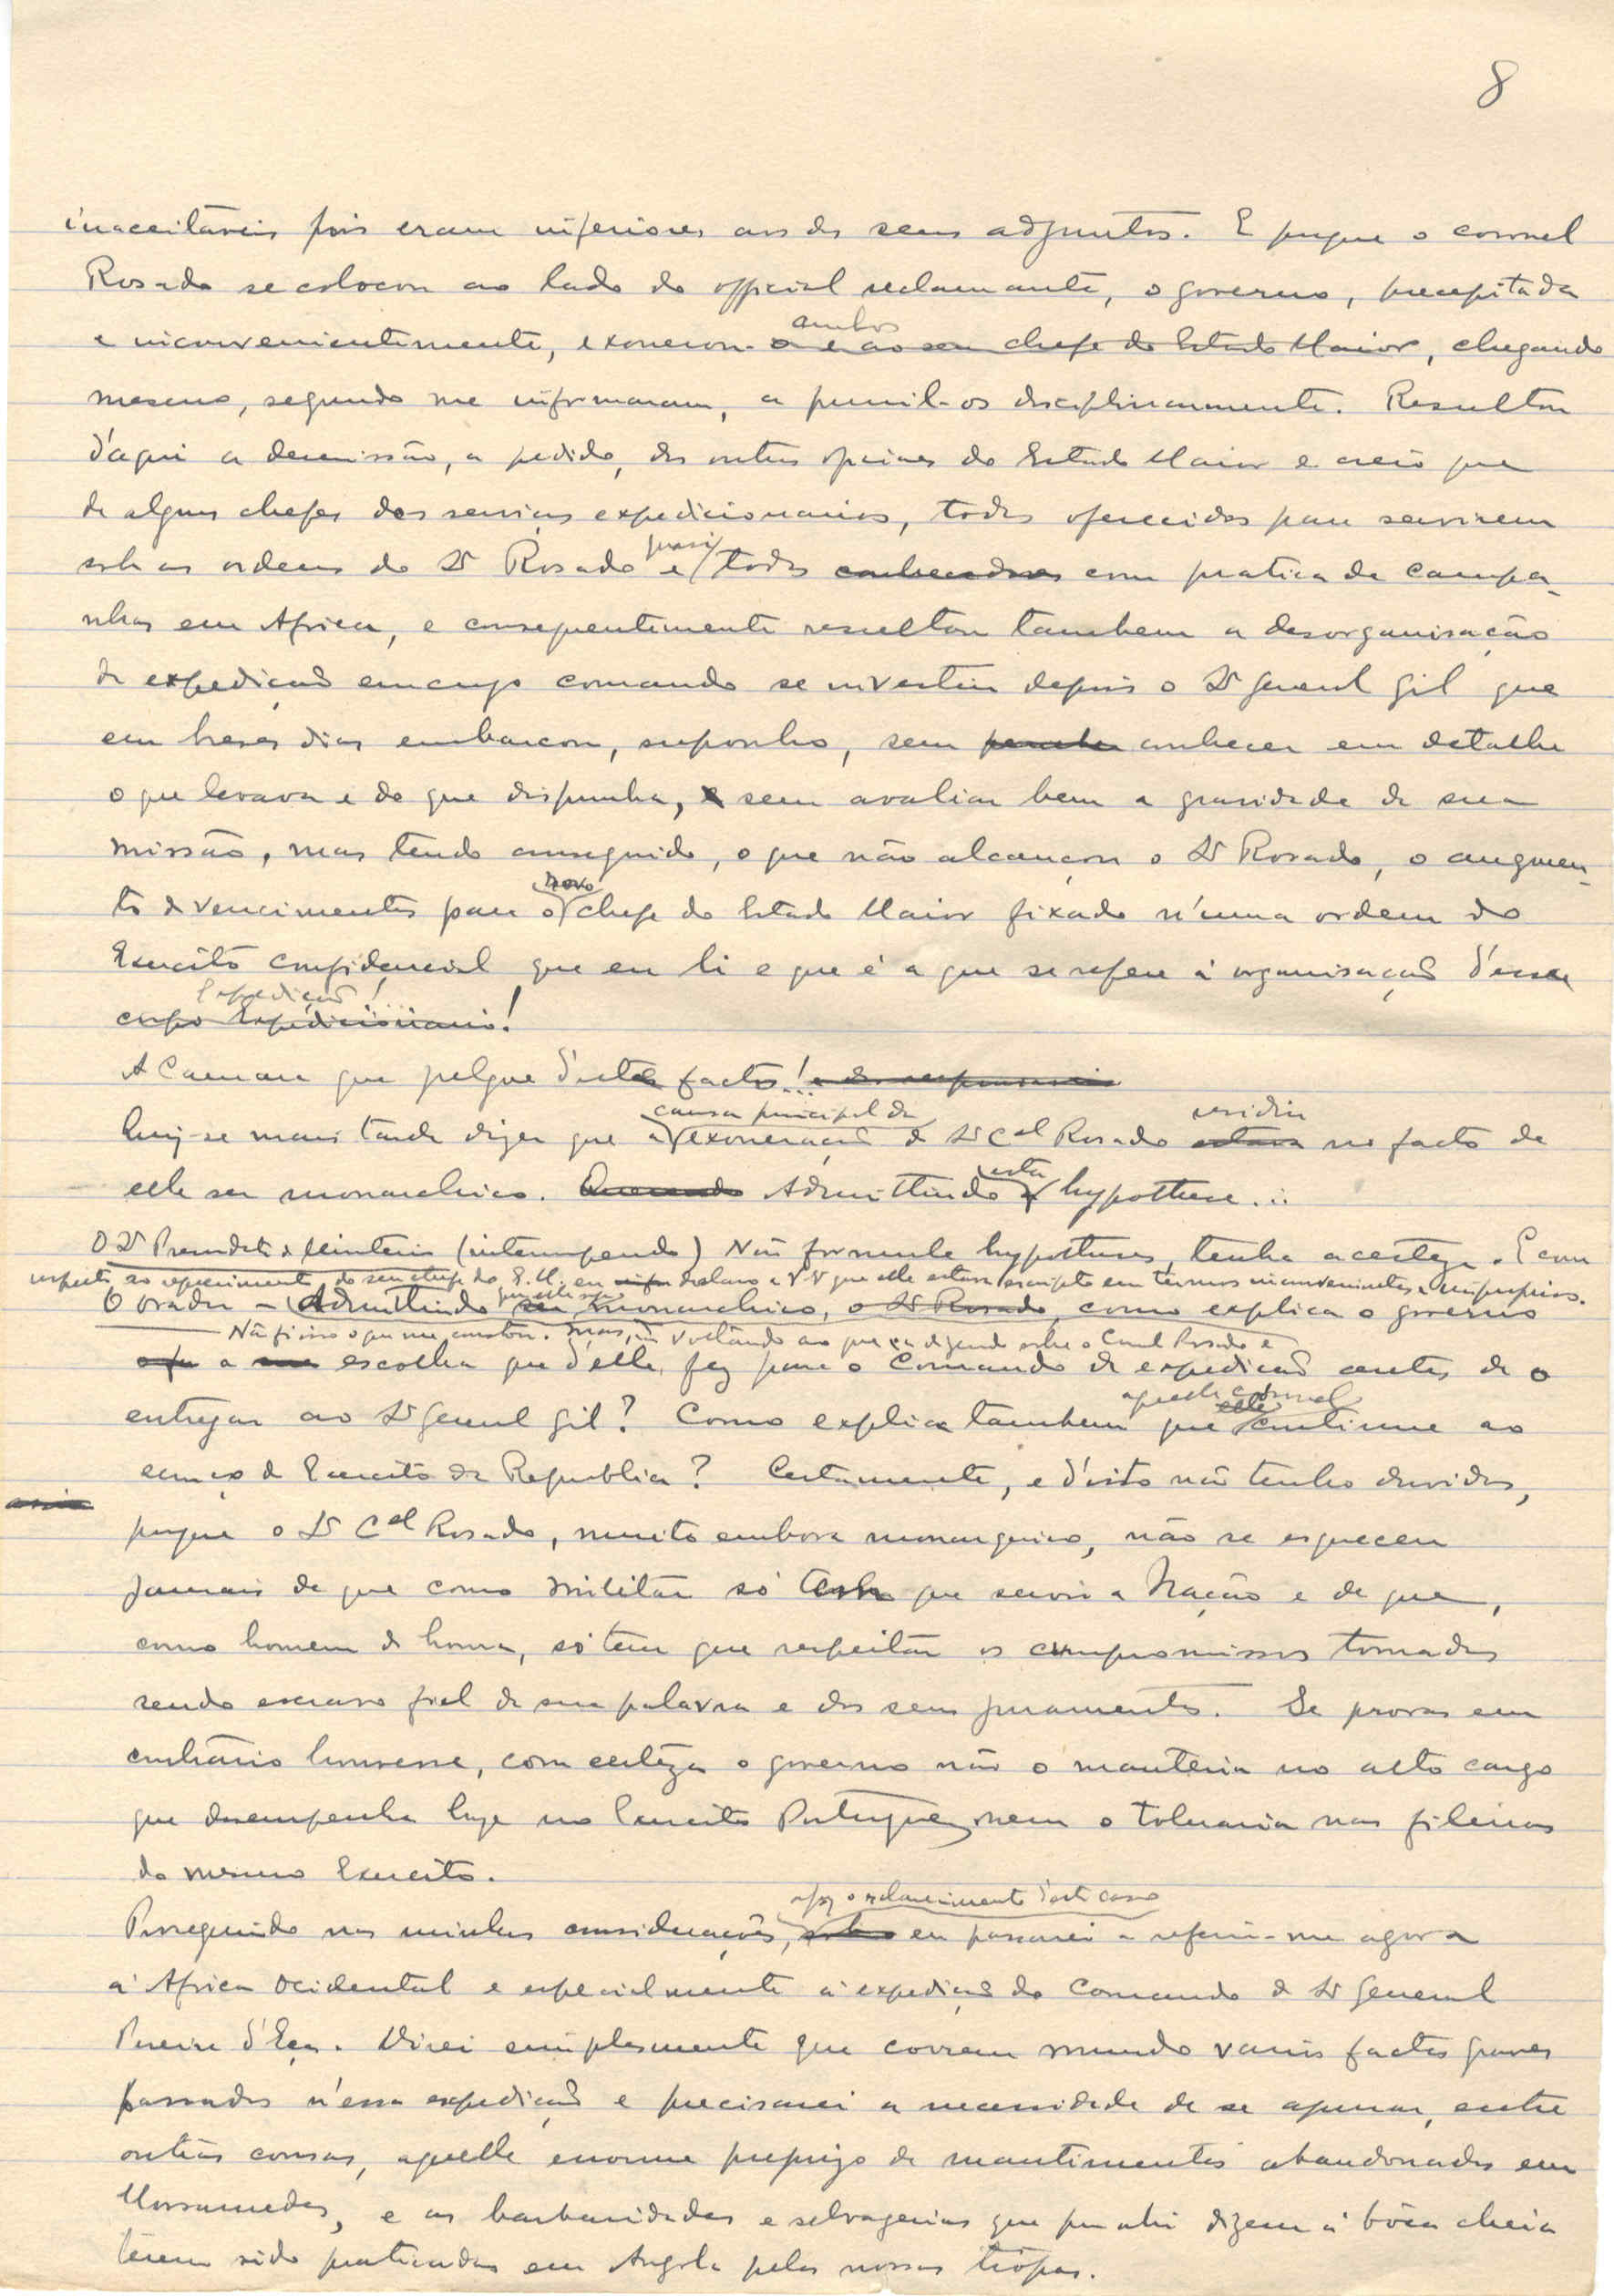 8
inaceitaveis pois eram inferiores aos dos seus adjuntos. E porque o coronel
Rosado se colocou ao lado do official reclamante, o governo, precepitada
e inconvenientemente, exonerou-o e ao seu chefe do Estado Maior, chegando
ambos
mesmo, segundo me informaram, a punil-os disciplinarmente. Resultou
d'aqui a demissão, a pedido, dos outros oficiaes do Estado Maior e creio que
de alguns chefes dos serviços expedicionarios, todos oferecidos para servirem
sob as ordens do Sr Rosado e todos conhecedores com pratica de campa-
quasi
nhas em Africa, e consequentemente resultou tambem a desorganisação
da expedição em cujo comando se investiu depois o Sr General Gil que
em breves dias embarcou, suponho, sem conhecer em detalhe
o que levava e do que dispunha, e sem avaliar bem a gravidade da sua
missão, mas tendo conseguido, o que não alcançou o Sr Rosado, o augmen-
to de vencimentos para o chefe do Estado Maior fixado n'uma ordem do
novo
Exercito confidencial que eu li e que é a que se refere á organisação d'essa
Expedição!
corpo Expedicionario!
A Camara que julgue d'estes factos!
causa principal da residia
Quiz-se mais tarde dizer que a exoneração do Sr Cel Rosado estava no facto de
elle ser monarchico. Admittindo esta hypothese...
O Sr Presidente do Ministerio (interrompendo) Não formule hypotheses, tenha a certeza. E com
respeito ao requerimento do seu chefe do E.M. eu declaro a V. Exa que elle estava escripto em termos inconvenientes e improprios.
O orador - Admittindo ser monarchico, o Sr Rosado, como explica o governo
que elle seja
Não foi isso o que me constou. Mas, voltando ao que ia dizendo sobre o Coronel Rosado e
a escolha que d'elle fez para o Comando da expedição antes de o
entregar ao Sr General Gil? Como explica tambem que elle continue ao
aquelle coronel
serviço do Exercito da Republica? Certamente, e d'isto não tenho duvidas,
porque o Sr Cel Rosado, muito embora monarquico, não se esqueceu
jamais de que como militar só tem que servir a Nação e de que,
como homem de honra, só tem que respeitar os compromissos tomados
sendo escravo fiel da sua palavra e dos seus juramentos. Se provas em
contrário houvesse, com certeza o governo não o manteria no alto cargo
que desempenha hoje no Exercito Portuguez, nem o toleraria nas fileiras
do mesmo Exercito.
após o esclarecimento d'este caso
Proseguindo nas minhas considerações, eu passarei a referir-me agora
á Africa Ocidental e especialmente á expedição do Comando do Sr General
Pereira d'Eça. Direi simplesmente que correm mundo varios factos graves
passados n'essa expedição e precisarei a necessidade de se apurar, entre
outras cousas, aquelle enorme prejuizo de mantimentos abandonados em
Mossamedes, e as barbaridades e selvagerias que por ahi dizem á bôca cheia
terem sido praticadas em Angola pelas nossas trópas.